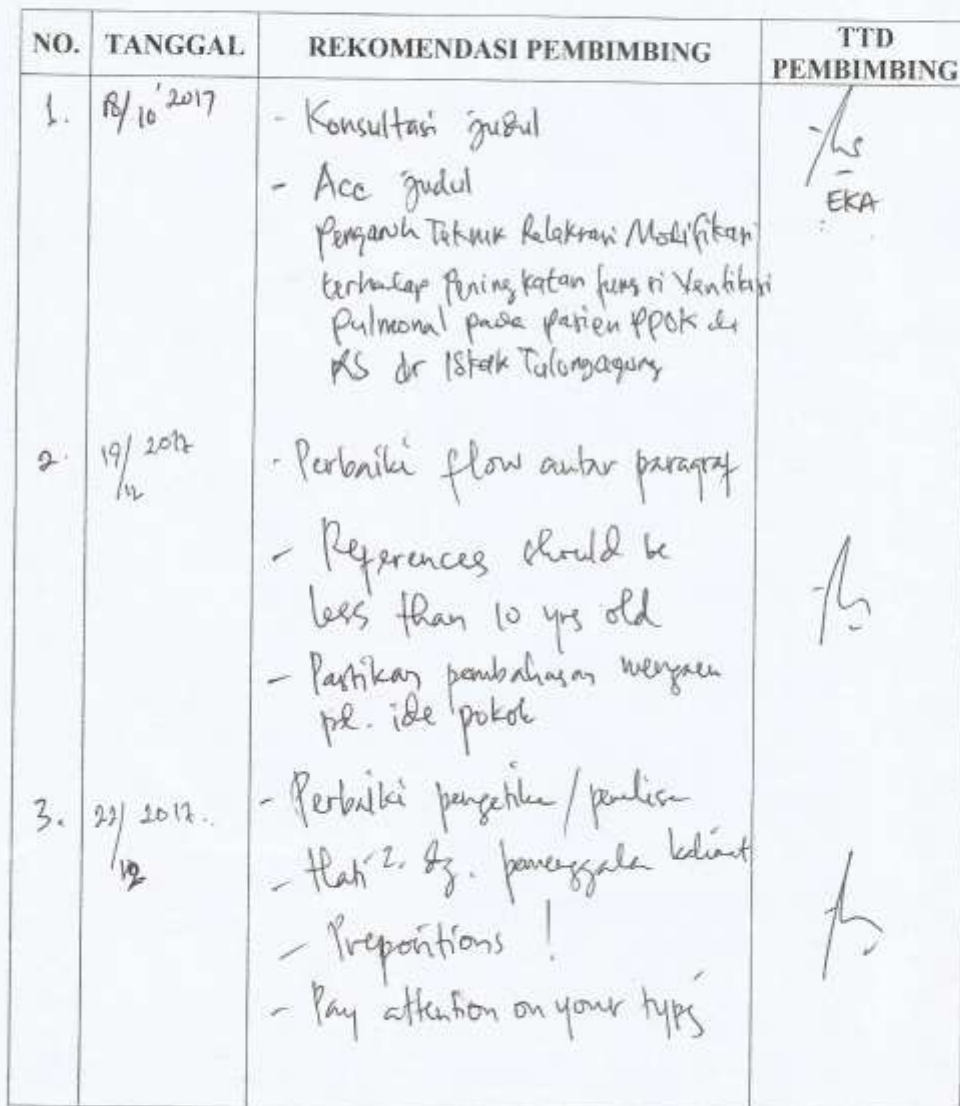 NO. TANGGAL REKOMENDASI PEMBIMBING TTD PEMBIMBING
1. 18/10 2017 - Konsultasi judul
- Acc judul
EKA
Pengaruh Teknik Relaksasi Modifikasi
terhadap Peningkatan fungsi Ventilasi
Pulmonal pada pasien PPOK di
RS dr Iskak Tulungagung
2. 19/12 2017 - Perbaiki flow antar paragraf
- References should be
less than 10 yrs old
- Pastikan pembahasan mengacu
pd. ide pokok
3. 22/12 2017 - Perbaiki pengetikan/penulisan
- Hati2. dg. pemenggalan kalimat
- Prepositions !
- Pay attention on your typing